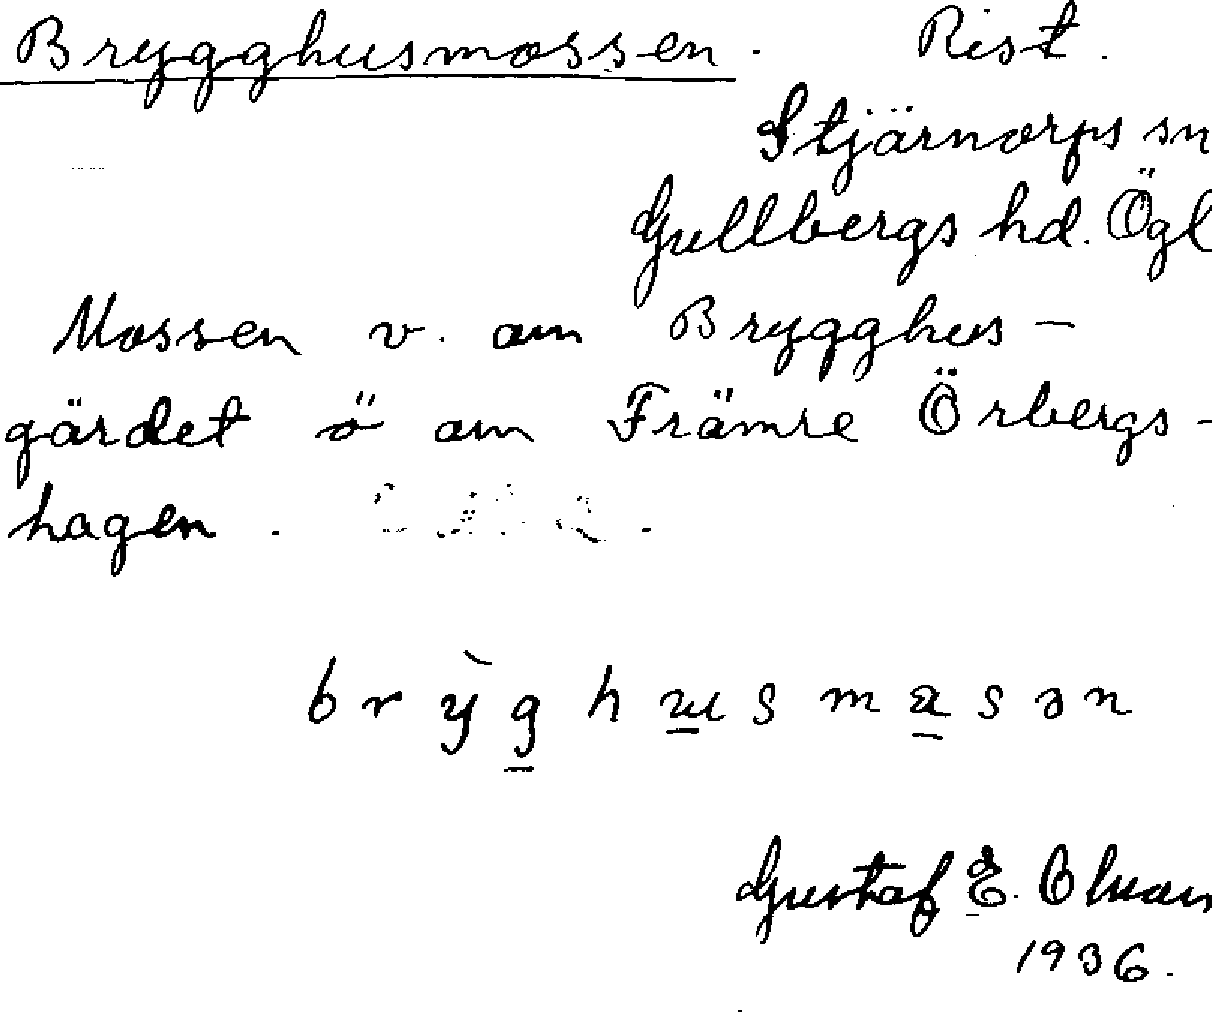 Brygghusmossen. Rist.
Stjärnorps sn
Gullbergs hd. Ögl
Mossen v. om Brygghus-
gärdet ö om Främre Örbergs-
hagen.
brỳg husmasən
Gustaf E.
1936.